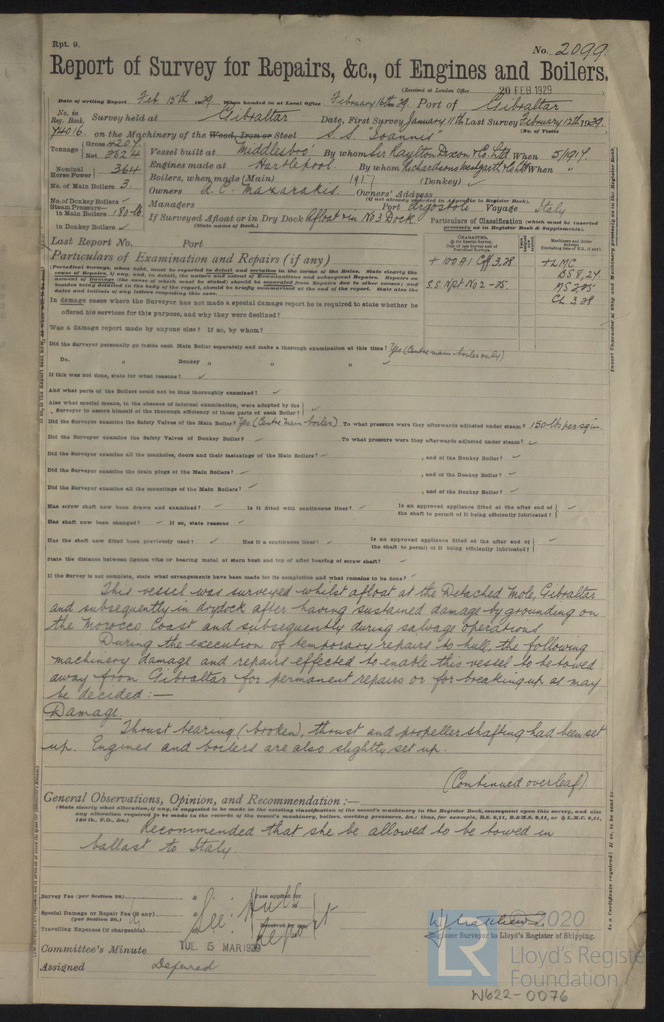 Rpt. 9.
No. 2099
Report of Survey for Repairs, &c., of Engines and Boilers.
(Received at London Office 20 FEB 1929
Date of writing Report Feb 15th 1929 When handed in at Local Office February 16th 29 Port of Gibraltar
No. in Reg. Book. Survey held at Gibraltar Date, First Survey January 11th Last Survey February 12th 1929
74016 on the Machinery of the Wood, Iron or Steel S.S. "Ioannis" (No. of Visits
Tonnage Gross 4207
Net 2624 Vessel built at Middlesboro' By whom Sir Raylton Dixon & Co. Ltd. When 5/1917.
Nominal Horse Power 364 Engines made at Hartlepool By whom Richardsons Westgarth & Co Ltd When "
No. of Main Boilers 3. Boilers, when made (Main) 1917 (Donkey) ✓
No. of Donkey Boilers ✓ Owners A. C. Mazarakis Owners' Address
(If not already recorded in Appendix to Register Book.)
Steam Pressure— in Main Boilers 180 lb Managers Port Argostoli Voyage Italy
in Donkey Boilers ✓ If Surveyed Afloat or in Dry Dock Afloat & in No 3 Dock.
(State name of Dock.)
Particulars of Classification (which must be inserted precisely as in Register Book & Supplements).
Last Report No. Port
Particulars of Examination and Repairs (if any)
+ 100 A1 Cff 3,28 + LMC
BS 8,27
S.S. Npt No 2 - 25. MS 2.25
CL 3 28
In damage cases where the Surveyor has not made a special damage report he is required to state whether he
offered his services for this purpose, and why they were declined?
Was a damage report made by anyone else? If so, by whom?
Did the Surveyor personally go inside each Main Boiler separately and make a thorough examination at this time? Yes (Centre main boiler only)
Do. " Donkey " " " " ✓
If this was not done, state for what reasons? ✓
And what parts of the Boilers could not be thus thoroughly examined? ✓
Also what special means, in the absence of internal examination, were adopted by the
Surveyor to assure himself of the thorough efficiency of those parts of each Boiler? ✓
Did the Surveyor examine the Safety Valves of the Main Boiler? Yes (Centre main boiler) To what pressure were they afterwards adjusted under steam? 150 lbs per sq in.
Did the Surveyor examine the Safety Valves of Donkey Boiler? ✓ To what pressure were they afterwards adjusted under steam? ✓
Did the Surveyor examine all the manholes, doors and their fastenings of the Main Boilers? ✓ , and of the Donkey Boiler? ✓
Did the Surveyor examine the drain plugs of the Main Boilers? ✓ , and of the Donkey Boiler? ✓
Did the Surveyor examine all the mountings of the Main Boilers? ✓ , and of the Donkey Boiler? ✓
Has screw shaft now been drawn and examined? ✓ Is it fitted with continuous liner? ✓ Is an approved appliance fitted at the after end of
the shaft to permit of it being efficiently lubricated? ✓
Has shaft now been changed? ✓ If so, state reasons ✓
Has the shaft now fitted been previously used? ✓ Has it a continuous liner? ✓ Is an approved appliance fitted at the after end of
the shaft to permit of it being efficiently lubricated? ✓
State the distance between lignum vitæ or bearing metal of stern bush and top of after bearing of screw shaft? ✓
If the Survey is not complete, state what arrangements have been made for its completion and what remains to be done? ✓
This vessel was surveyed whilst afloat at the Detached Mole, Gibraltar
and subsequently in drydock after having sustained damage by grounding on
the Morocco Coast and subsequently during salvage operations
During the execution of temporary repairs to hull, the following
machinery damage and repairs effected to enable this vessel to be towed
away from Gibraltar for permanent repairs or for breaking up as may
be decided :—
Damage
Thrust bearing (broken), thrust and propeller shafting had been set
up. Engines and boilers are also slightly set up.
(Continued overleaf)
General Observations, Opinion, and Recommendation :—
(State clearly what alteration, if any, is suggested to be made in the existing classification of the vessel's machinery in the Register Book, consequent upon this survey, and also
Recommended that she be allowed to be towed in
ballast to Italy.
Survey Fee (per Section 28)
Special Damage or Repair Fee (if any)
(per Section 28.)
Travelling Expenses (if chargeable)
Fees applied for
See Hull Report
W. J. Matthews. 2020
Engineer Surveyor to Lloyd's Register of Shipping.
Committee's Minute TUE. 5 MAR 1929
Assigned Deferred
LR Lloyd's Register
Foundation
W622-0076